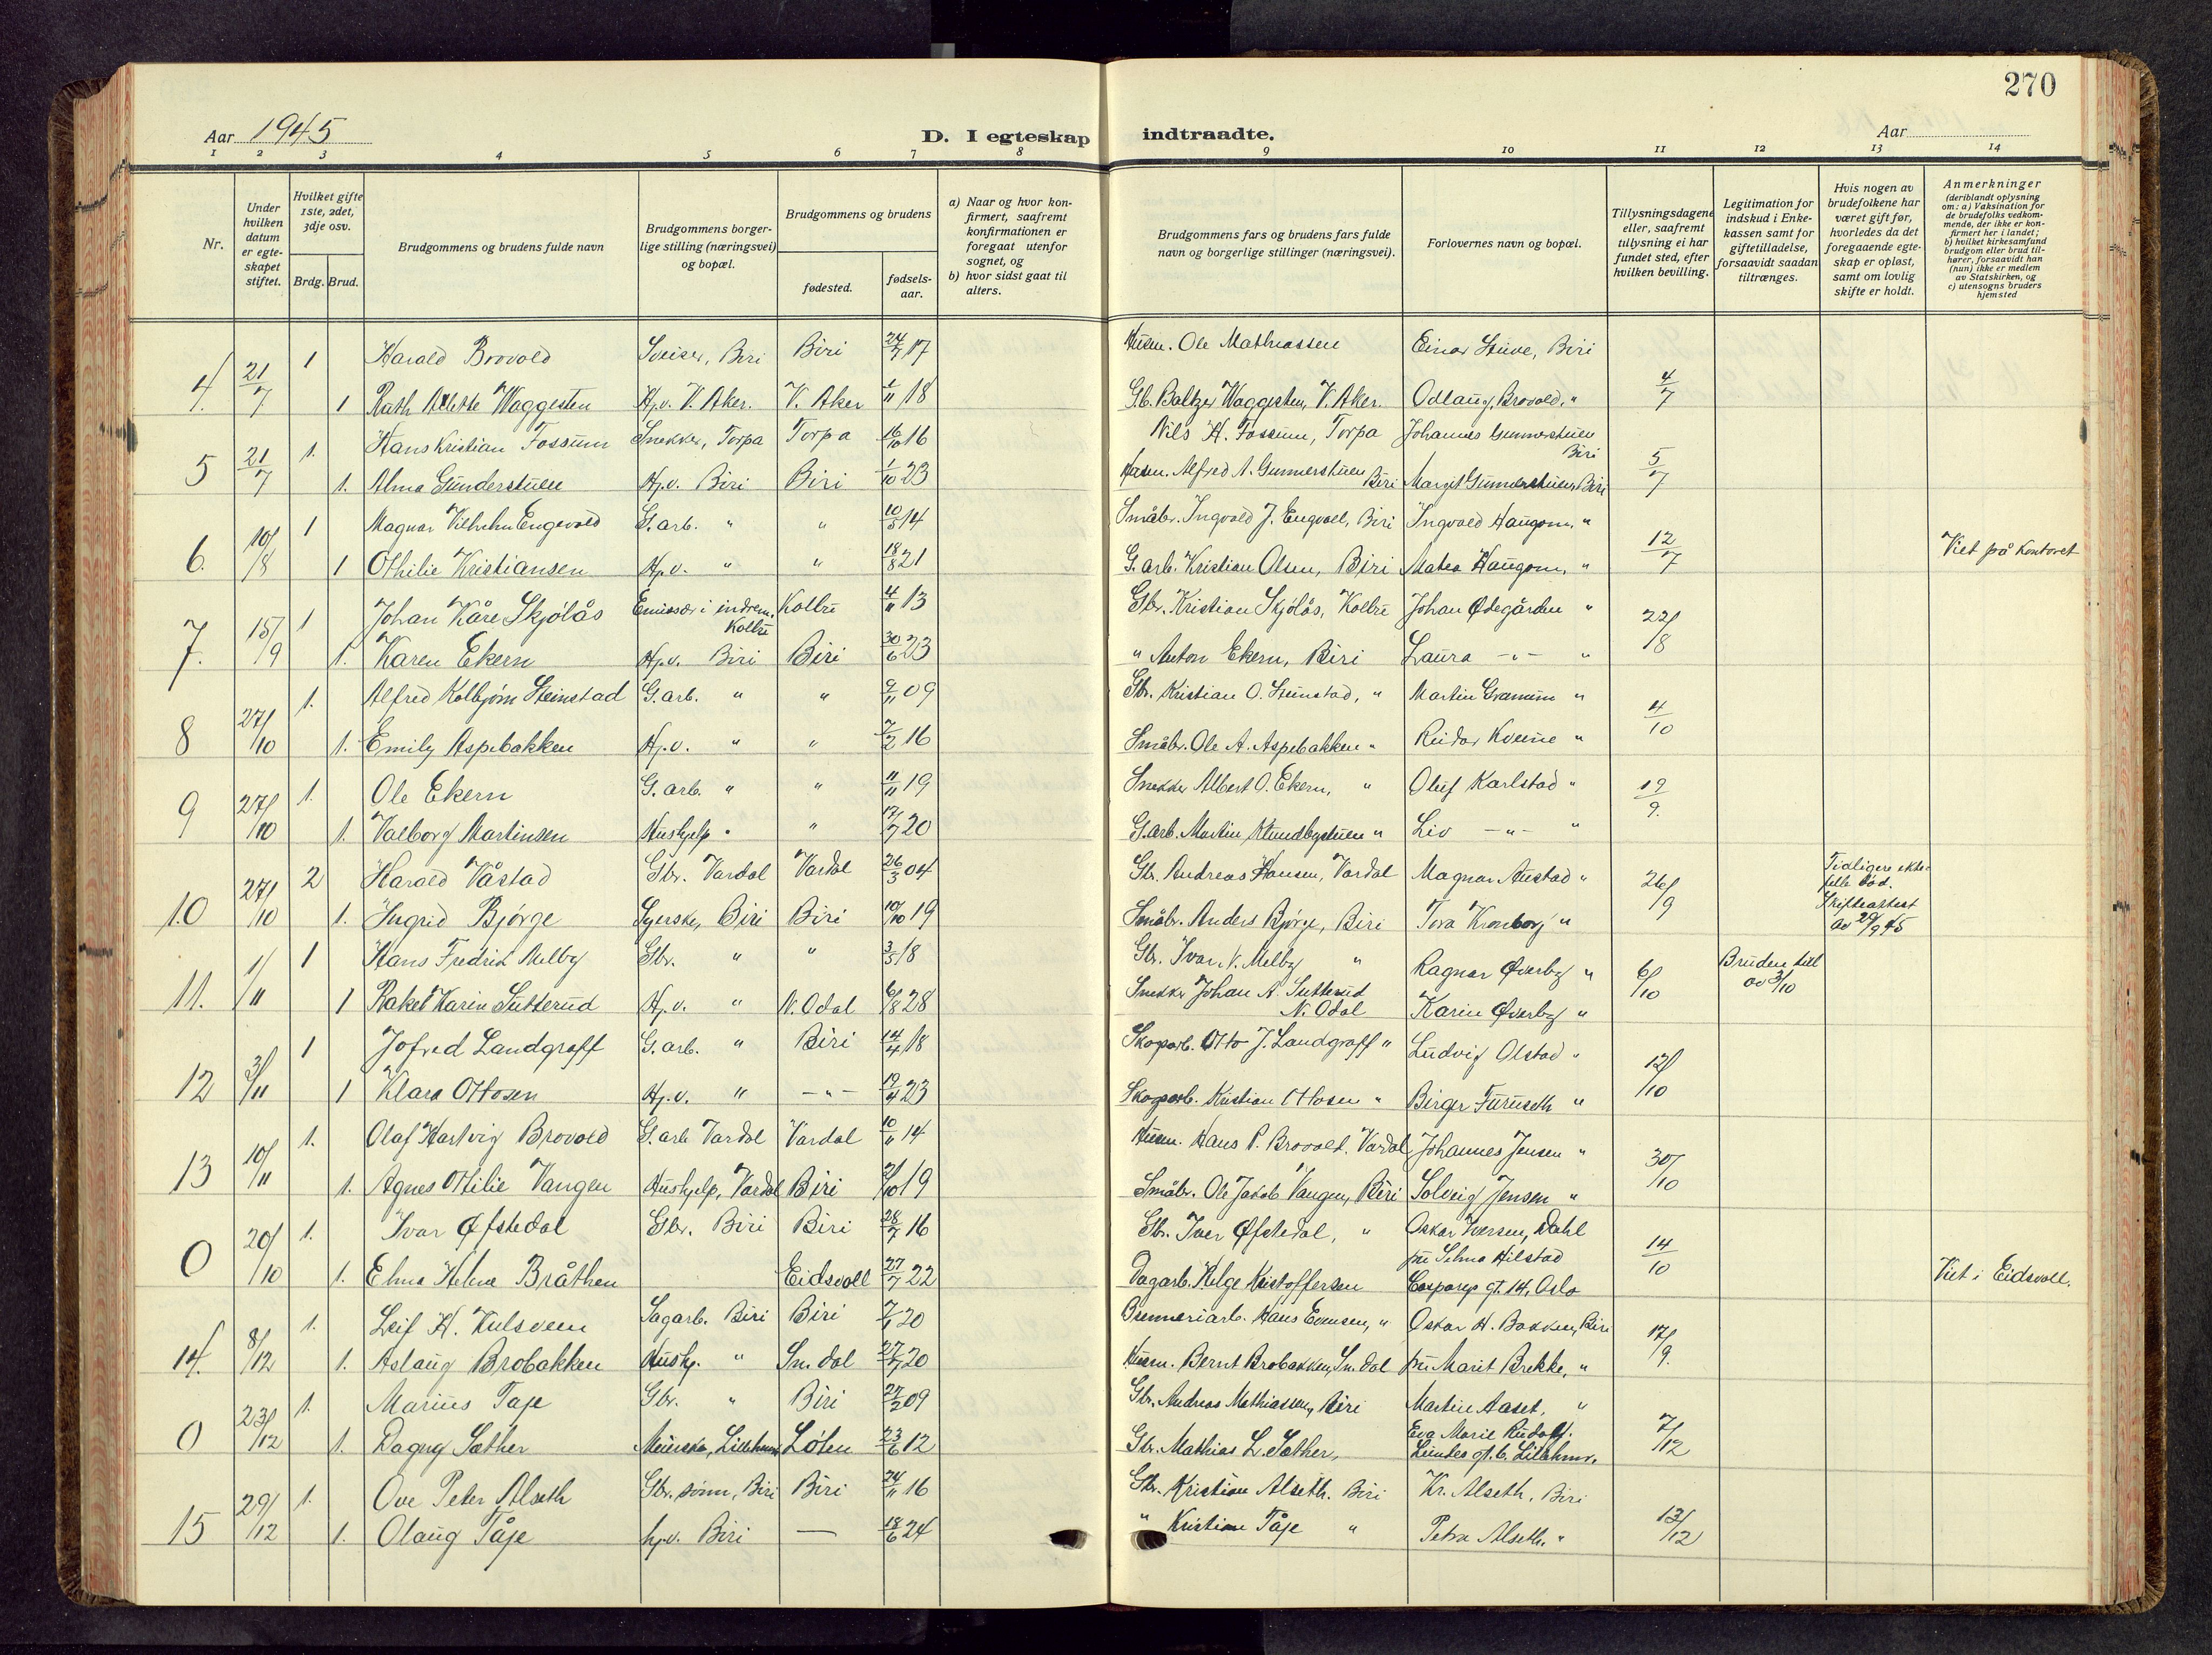 270
Aar 1945
D. I egteskap indtraadte.
Aar
1 2 3 4 5 6 7 8 9 10 11 12 13 14
Nr.
Under hvilken datum er egteskapet stiftet.
Hvilket gifte 1ste, 2det, 3dje osv.
Brdg. Brud.
Brudgommens og brudens fulde navn
Brudgommens borgerlige stilling (næringsvei) og bopæl.
Brudgommens og brudens
fødested.
fødselsaar.
a) Naar og hvor konfirmert, saafremt konfirmationen er foregaat utenfor sognet, og
b) hvor sidst gaat til alters.
Brudgommens fars og brudens fars fulde navn og borgerlige stillinger (næringsvei).
Forlovernes navn og bopæl.
Tillysningsdagene eller, saafremt tillysning ei har fundet sted, efter hvilken bevilling.
Legitimation for indskud i Enkekassen samt for giftetilladelse, forsaavidt saadan tiltrænges.
Hvis nogen av brudefolkene har været gift før, hvorledes da det foregaaende egteskap er opløst, samt om lovlig skifte er holdt.
Anmerkninger (deriblandt oplysning om: a) Vaksination for de brudefolks vedkommende, der ikke er konfirmert her i landet; b) hvilket kirkesamfund brudgom eller brud tilhører, forsaavidt han (hun) ikke er medlem av Statskirken, og c) utensogns bruders hjemsted
4. 21/7 1 Harald Brovold Sveiser, Biri Biri 24/7 17 Husm. Ole Mathiassen Einar Stuve, Biri 4/7
1 Ruth Alette Waggesten Hj.v. V. Aker. V. Aker 1/11 18 Gb. Baltzer Waggesten, V. Aker. Odlaug Brovold, "
5 21/7 1. Hans Kristian Fossum Snekker, Torpa Torpa 16/10 16 Nils H. Fossum, Torpa Johannes Gunnerstuen Biri 5/7
1. Alma Gunderstuen Hj.v. Biri Biri 1/10 23 Husm. Alfred A. Gunnerstuen Biri Margit Gunnerstuen, Biri
6. 10/8 1 Magnar Vilhelm Engevold G. arb. " " 10/8 14 Småbr. Ingvold J. Engvoll, Biri Ingvold Haugom, " 12/7 Viet på kontoret
1 Othilie Kristiansen Hj.v. " " 18/8 21 G. arb. Kristian Olsen, Biri Matea Haugom, "
7. 15/9 1 Johan Kåre Skjølås Emissær i indrem. Kolbu Kolbu 4/11 13 Gbr. Kristian Skjølås, Kolbu Johan Ødegården " 22/8
1. Karen Ekern Hj.v. Biri Biri 30/6 23 " Anton Ekern, Biri Laura -"- "
8 27/10 1. Alfred Kolbjørn Steinstad G. arb. " " 9/11 09 Gbr. Kristian O. Steinstad, " Martin Granum " 4/10
1. Emily Aspebakken Hj.v. " " 7/2 16 Småbr. Ole A. Aspebakken " Reidar Kveine "
9 27/10 1. Ole Ekern G. arb. " " 11/11 19 Snekker Albert O. Ekern, " Oluf Karlstad " 19/9.
1. Valborg Martinsen Hushjelp " " 17/7 20 G. arb. Martin Klundbystuen " Liv -"- "
10 27/10 2 Harald Våstad Gbr. Vardal Vardal 26/3 04 Gbr. Andreas Hansen, Vardal Magnar Austad " 26/9 Tidligere ektefelle død. Skifteattest av 29/9 45
1. Ingrid Bjørge Syerske, Biri Biri 10/10 19 Småbr. Anders Bjørge, Biri Tora Kronborg "
11. 1/11 1 Hans Fredrik Melby Gbr. " " 3/5 18 Gbr. Ivar N. Melby " Ragnar Øverby " 6/10 Bruden till av 3/10
1 Rakel Karin Sutterud Hj.v. " N. Odal 6/8 28 Snekker Johan A. Sutterud N. Odal Karin Øverby "
12 3/11 1 Jofred Landgraff G. arb. " Biri 14/4 18 Skogarb. Otto J. Landgraff " Ludvig Olstad " 12/10
1 Klara Ottosen Hj.v. " -"- 19/4 23 Skogarb. Kristian Ottosen " Birger Furuseth "
13 10/11 1. Olaf Hartvig Brovold G. arb Vardal Vardal 10/11 14 Husm. Hans P. Brovold, Vardal Johannes Jensen " 30/10
1. Agnes Othilie Vangen Hushjelp, Vardal Biri 2/10 19 Småbr. Ole Jakob Vangen, Biri Solveig Jensen "
0 20/10 1. Ivar Øfstedal Gbr. Biri Biri 28/7 16 Gbr. Iver Øfstedal, " Oskar Iversen, Dahl 14/10 Viet i Eidsvoll.
1. Elma Helene Bråthen Eidsvoll 27/7 22 Dagarb. Helge Kristoffersen fru Selma Hilstad Casparis gt. 14, Oslo
14. 8/12 1. Leif H. Kulsveen Sagarb. Biri Biri 7/1 20 Brenneriarb. Hans Evensen, " Oskar H. Bakken, Biri 17/9.
1. Aslaug Brobakken Hushj. " Sn. dal 27/7 20 Husm. Bernt Brobakken, Sn. dal fru Marit Brekke, "
0 23/12 1. Marius Taje Gbr. " Biri 27/2 09 Gbr. Andreas Mathiassen, Biri Martin Aaset, " 7/12
1. Dagny Sæther Løten 23/6 12 Gbr. Mathias L. Sæther, Eva Marie Rudolf. Lundes gt. 6. Lillehmr.
15 29/12 1. Ove Peter Alseth Gbr. sønn, Biri Biri 24/11 16 Gbr. Kristian Alseth. Biri Kr. Alseth, Biri 13/12
1. Olaug Tåje hj.v. Biri — 18/6 24 " Kristian Tåje " Petra Alseth. "